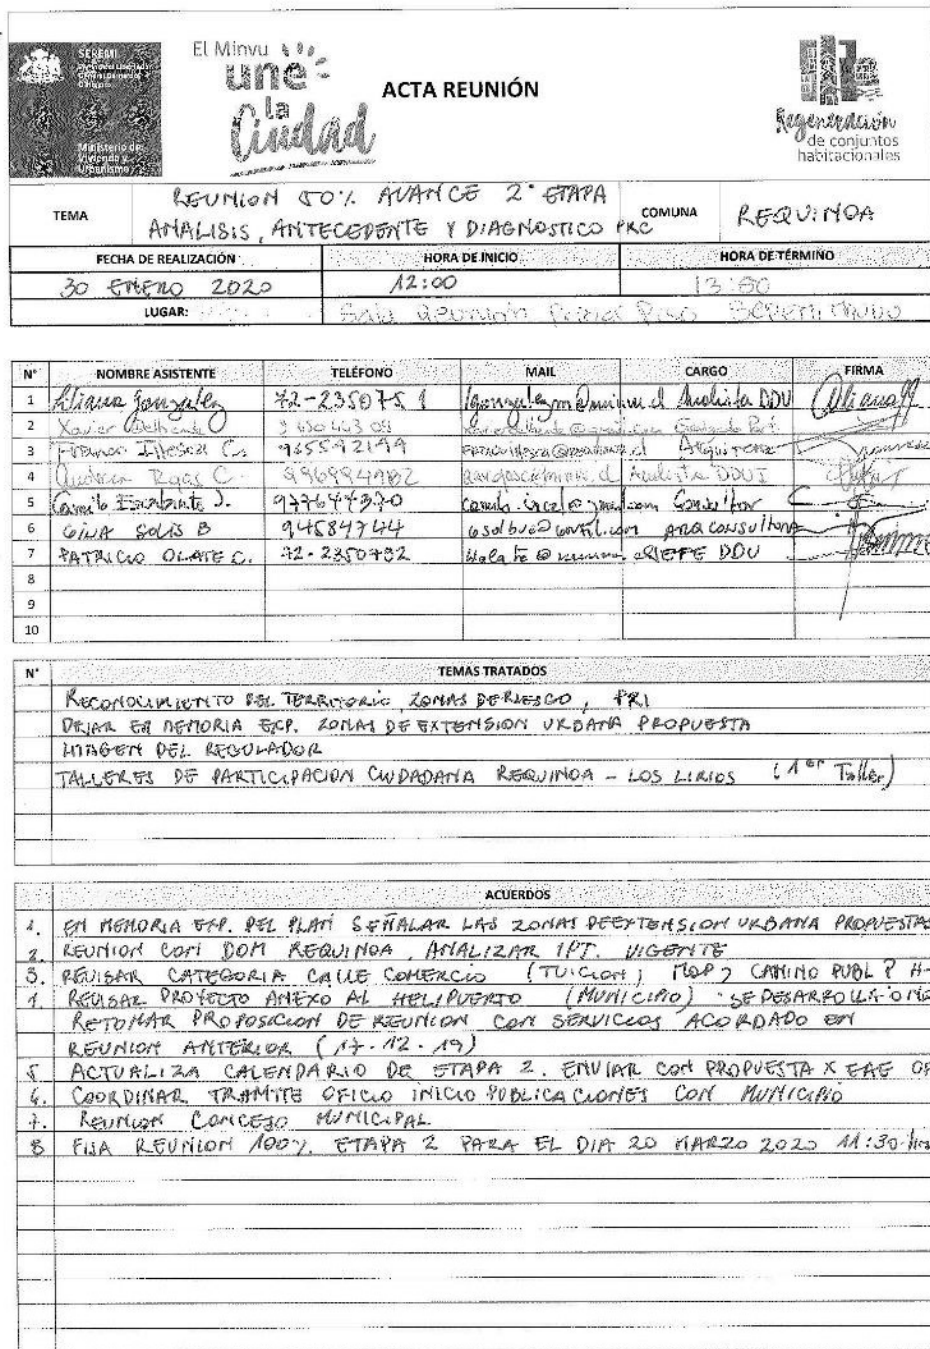 SEREMI
Ministerio de
Vivienda y
Urbanismo
El Minvu
une
la
Ciudad
ACTA REUNIÓN
Regeneración
de conjuntos
habitacionales
TEMA
REUNION 50% AVANCE 2° ETAPA
ANALISIS, ANTECEDENTE Y DIAGNOSTICO PRC
COMUNA
REQUINOA
FECHA DE REALIZACIÓN HORA DE INICIO HORA DE TÉRMINO
30 ENERO 2020 12:00 13:00
LUGAR: Sala Reunión Primer Piso Seremi Minvu
N° NOMBRE ASISTENTE TELÉFONO MAIL CARGO FIRMA
1 Liliana Gonzalez 72-235075 1 Analista DDU
2 Xavier
3 C. 965592199 Arquitecto
4 Rojas C. Analista DDUI
5 Camilo Escalante J. 977647370 Consultor
6 GINA SOLIS B 94584744 ARQ CONSULTORA
7 PATRICIO OLATE C. 72-2350792 JEFE DDU
8
9
10
N° TEMAS TRATADOS
RECONOCIMIENTO DEL TERRITORIO, ZONAS DE RIESGO, PRI
DEJAR EN MEMORIA EXP. ZONAS DE EXTENSION URBANA PROPUESTA
IMAGEN DEL REGULADOR
TALLERES DE PARTICIPACION CIUDADANA REQUINOA - LOS LIRIOS (1er Taller)
ACUERDOS
1. EN MEMORIA EXP. DEL PLAN SEÑALAR LAS ZONAS DE EXTENSION URBANA PROPUESTAS
2. REUNION CON DOM REQUINOA, ANALIZAR IPT. VIGENTE
3. REVISAR CATEGORIA CALLE COMERCIO (TUICION, MOP, CAMINO PUBL?
4. REVISAR PROYECTO ANEXO AL HELIPUERTO (MUNICIPIO) SE DESARROLLA O NO
RETOMAR PROPOSICION DE REUNION CON SERVICIOS ACORDADO EN
REUNION ANTERIOR (17.12.19)
5 ACTUALIZA CALENDARIO DE ETAPA 2. ENVIAR CON PROPUESTA X EAE OF
6. COORDINAR TRAMITE OFICIO INICIO PUBLICACIONES CON MUNICIPIO
7. REUNION CONCEJO MUNICIPAL.
8 FIJA REUNION 100% ETAPA 2 PARA EL DIA 20 MARZO 2020 11:30 hrs